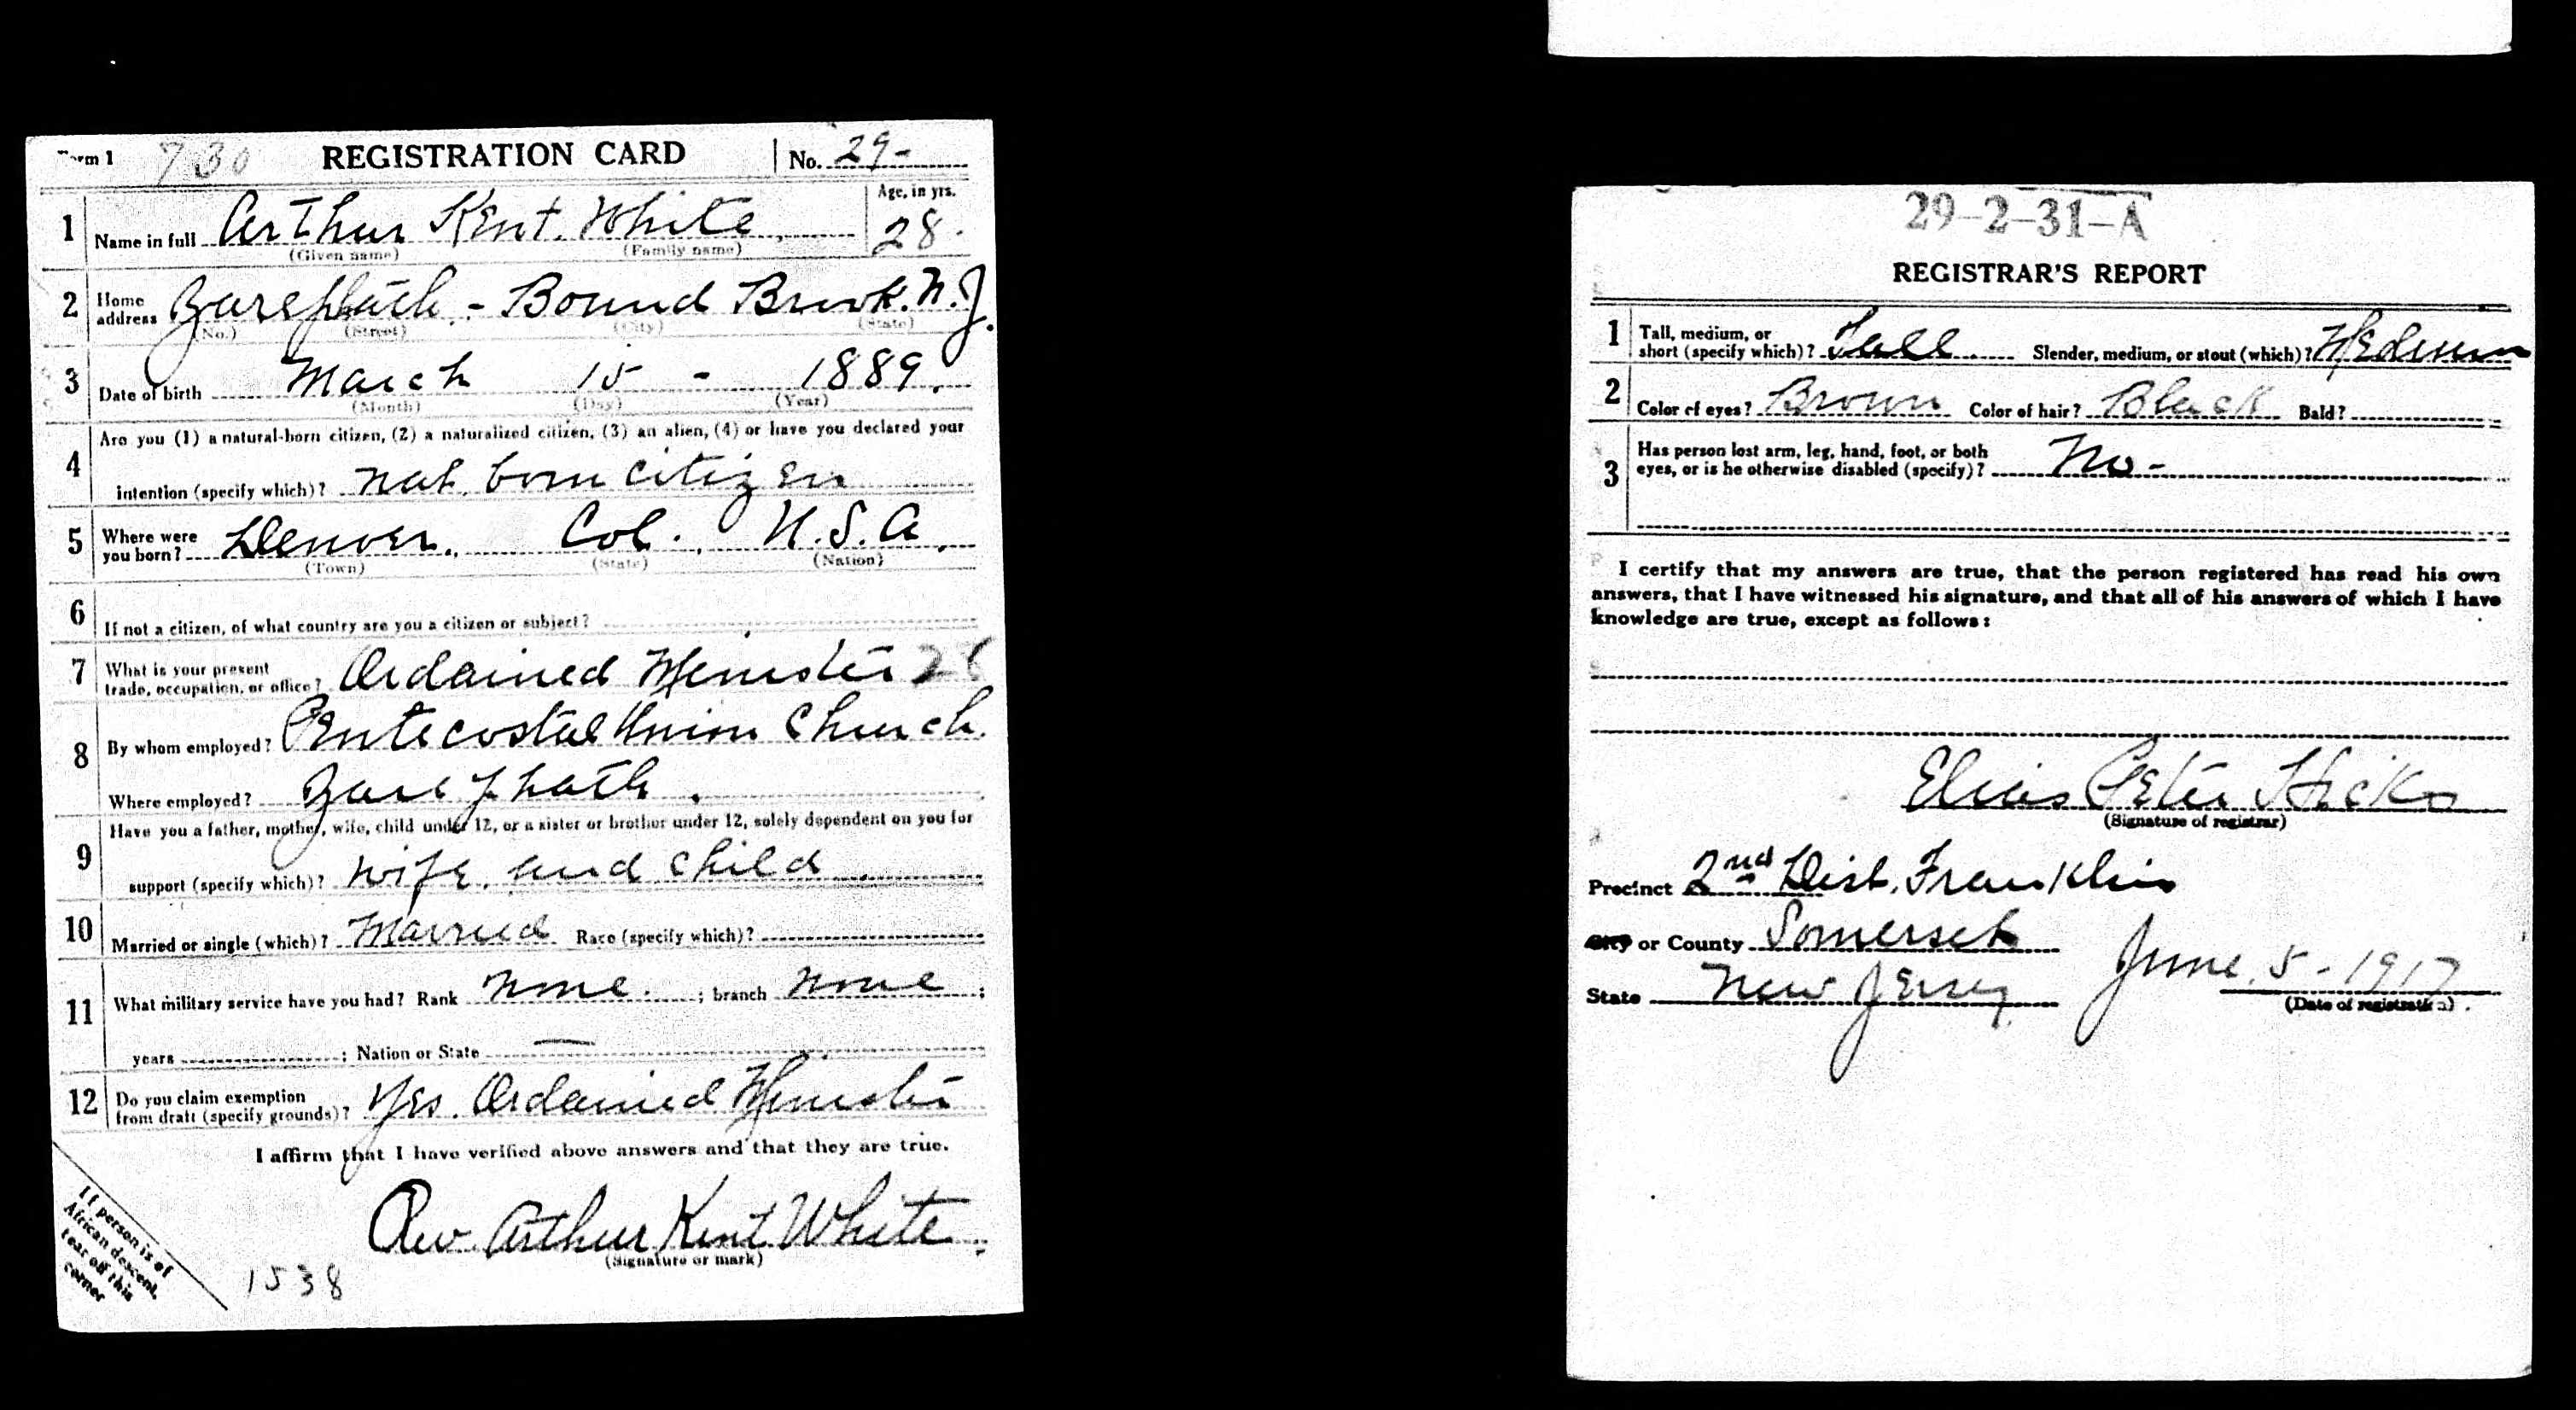 Form 1 730 REGISTRATION CARD No. 29-
1 Name in full Arthur Kent. White, Age, in yrs. 28.
(Given name) (Family name)
2 Home address Zarephath - Bound Brook. N.J.
(No.) (Street) (City) (State)
3 Date of birth March 15 - 1889.
(Month) (Day) (Year)
4 Are you (1) a natural-born citizen, (2) a naturalized citizen, (3) an alien, (4) or have you declared your
intention (specify which)? Nat. born citizen
5 Where were you born? Denver. Col. U.S.A.
(Town) (State) (Nation)
6 If not a citizen, of what country are you a citizen or subject?
7 What is your present trade, occupation, or office? Ordained Minister 28
8 By whom employed? Pentecostal Union Church.
Where employed? Zarephath.
9 Have you a father, mother, wife, child under 12, or a sister or brother under 12, solely dependent on you for
support (specify which)? Wife. and child.
10 Married or single (which)? Married Race (specify which)?
11 What military service have you had? Rank None. ; branch None ;
years ; Nation or State —
12 Do you claim exemption from draft (specify grounds)? Yes. Ordained Minister
I affirm that I have verified above answers and that they are true.
Rev. Arthur Kent White.
(Signature or mark)
If person is of
African descent,
tear off this
corner
1538
29-2-31-A
REGISTRAR'S REPORT
1 Tall, medium, or short (specify which)? Tall Slender, medium, or stout (which)? Medium
2 Color of eyes? Brown Color of hair? Black Bald?
3 Has person lost arm, leg, hand, foot, or both
eyes, or is he otherwise disabled (specify)? No-
I certify that my answers are true, that the person registered has read his own
answers, that I have witnessed his signature, and that all of his answers of which I have
knowledge are true, except as follows:
Elias Peter Hicks
(Signature of registrar)
Precinct 2nd Dist. Franklin
City or County Somerset
State New Jersey June. 5 - 1917
(Date of registration)